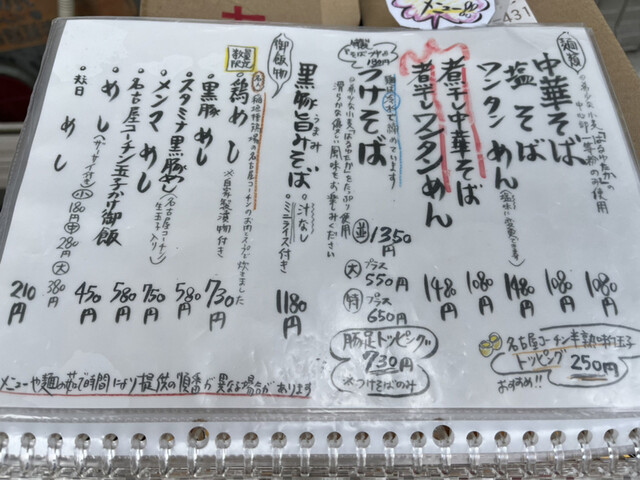 メニュー
431
麺類
北海道産小麦「はるゆたか」の
中心部一等粉のみ使用
中華そば 1080円
塩そば 1080円
ワンタンめん 1480円
(塩味に変更できます)
煮干し中華そば 1080円
煮干しワンタンめん 1480円
つけそば
並 1350円
大 プラス 550円
特 プラス 650円
黒豚旨みそば 1180円
うまみ
・汁なし
・ミニライス付き
御飯物
数量限定
・鶏めし 730円
※自家製漬物付き
・黒豚めし 580円
・スタミナ黒豚めし 750円
(名古屋コーチン生玉子入り)
・メンマめし 580円
・名古屋コーチン玉子かけ御飯 450円
・めし
小 180円 中 280円 大 380円
210円
豚足トッピング
730円
※つけそばのみ
名古屋コーチン半熟味玉子
トッピング 250円
おすすめ!!
メニューや麺の茹で時間により提供の順番が異なる場合があります